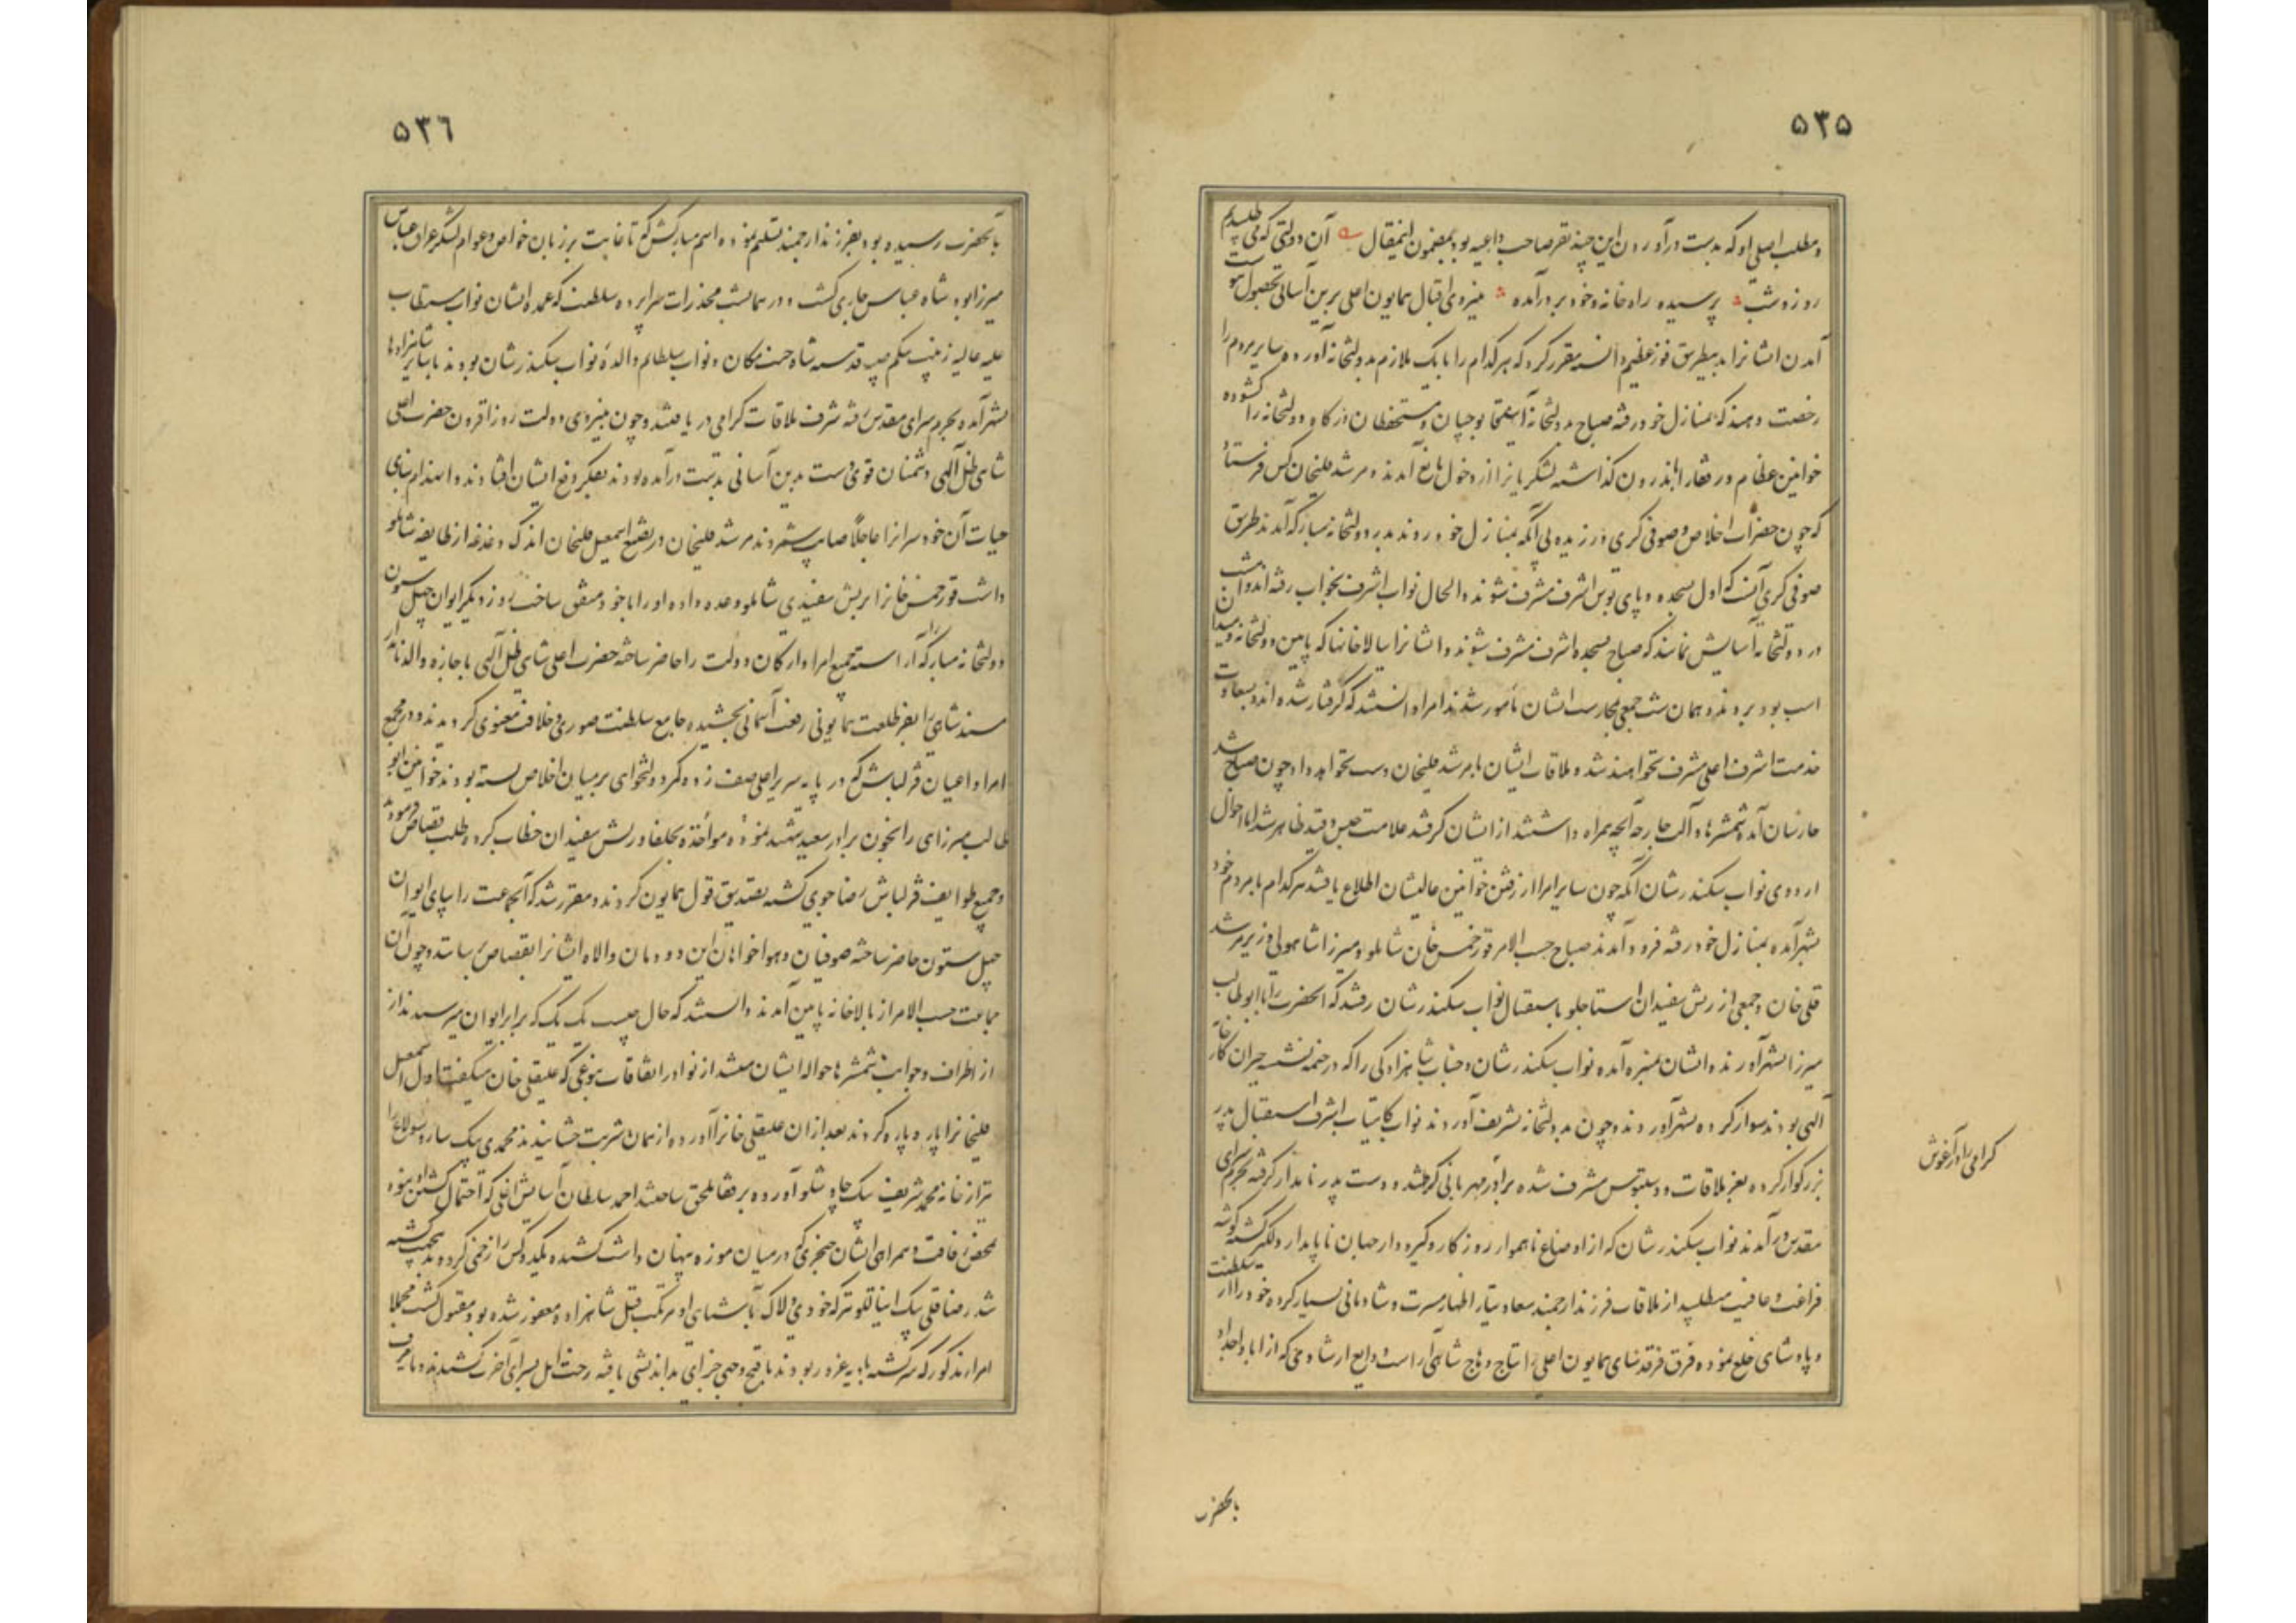 ۵۳۵
و مطلب اصلی او که بدست درآوردن این چند نفر صاحب داعیه بود بمضمون اینمقال آن دولتی که می طلبیدیم
روز و شب پرسیده راه خانه و خود بر در آمده بنیروی اقبال همایون اعلی برین آسانی بحصول
آمدن ایشانرا بدینطریق فوز عظیم دانسته مقرر کرد که هر کدام را با یک ملازم بدولتخانه آورده سایر مردم را
رخصت دهند که بمنازل خود رفته صباح بدولتخانه آیند قاپوجیان و مستحفظان درگاه دولتخانه را گشوده
خوانین عظام و رفقا را باندرون گذاشته لشکریانرا از دخول مانع آمدند و مرشد قلیخان کس فرستاد
که چون حضرات اخلاص و صوفی گری ورزیده بی آنکه بمنازل خود روند بدر دولتخانه مبارکه آمدند طریق
صوفی گری آنست که اول بسجده و پای بوس اشرف مشرف شوند والحال نواب اشرف بخواب رفته اند امشب
در دولتخانه آسایش نمایند که صباح بسجده اشرف مشرف شوند و ایشانرا ببالاخانها که پایین دولتخانه و میدان
اسب بود بردند و همان شب جمعی بحراست ایشان مأمور شدند امراء دانستند که گرفتار شده اند و بسعادت
خدمت اشرف اعلی مشرف نخواهند شد و ملاقات ایشان با مرشد قلیخان دست نخواهد داد چون صباح شد
حارسان آمده شمشیرها و آلت جارحه آنچه همراه داشتند از ایشان گرفتند علامت حبس و قید ظاهر شد اما احوال
اردوی نواب سکندرشان آنکه چون سایر امرا از رفتن خوانین عالیشان اطلاع یافتند هر کدام با مردم خود
بشهر آمده بمنازل خود رفته فرود آمدند صباح حسب الامر قورخمس خان شاملو و میرزا شاهولی وزیر مرشد
قلی خان و جمعی از ریش سفیدان استاجلو باستقبال نواب سکندرشان رفتند که آنحضرت را با ابوطالب
میرزا بشهر آورند و ایشان بمقبره آمده نواب سکندرشان و جناب شاهزادگی را که در خیمه نشسته حیران کارخانه
الهی بودند سوار کرده بشهر آوردند و چون بدولتخانه تشریف آوردند نواب کامیاب اشرف استقبال پدر
بزرگوار کرده بعز ملاقات و دستبوس مشرف شده برادر مهربانی گرفتند و دست پدر نامدار گرفته بحرم سرای
گرامی را در آغوش
مقدس درآمدند نواب سکندرشان که از اوضاع ناهموار روزگار و گیر و دار جهان ناپایدار دلگیر گشته گوشه
فراغت و عافیت میطلبید از ملاقات فرزند ارجمند سعادتیار اظهار مسرت و شادمانی بسیار کرده خود را از سلطنت
و پادشاهی خلع نموده فرق فرقدسای همایون اعلی را بتاج وهاج شاهی آراست و ودایع ارشاد حق که از آبا و اجداد
بآنحضرت
۵۳۶
بآنحضرت رسیده بود بفرزند ارجمند تسلیم نموده اسم مبارکش که تا غایت بر زبان خواص و عوام لشکر عراق عباس
میرزا بود شاه عباس جاری گشت و در همانشب مخدرات سراپرده سلطنت که عمده ایشان نواب مستطاب
علیه عالیه زینب بیگم صبیه قدسیه شاه جنت مکان و نواب سلطانم والده نواب سکندرشان بودند با سایر شاهزادها
بشهر آمده بحرم سرای مقدس رفته شرف ملاقات گرامی دریافتند و چون بنیروی دولت روزافزون حضرت اعلی
شاهی ظل آلهی دشمنان قوی دست بدین آسانی بدست درآمده بودند بفکر دفع ایشان افتادند و انهدام بنای
حیات آن خود سرانرا عاجلاً صواب شمردند مرشد قلیخان در تضییع اسمعیل قلیخان اندک دغدغه از طایفه شاملو
داشت قورخمس خانرا بریش سفیدی شاملو وعده داده او را با خود متفق ساخت روز دیگر ایوان چهل ستون
دولتخانه مبارکه را آراسته جمیع امرا و ارکان دولت را حاضر ساخته حضرت اعلی شاهی ظل آلهی باجازه والد نامدار
مسند شاهی را بفر طلعت همایونی رفعت آسمانی بخشیده جامع سلطنت صوری و خلافت معنوی گردیدند و در مجمع
امرا و اعیان قزلباش که در پایه سریر اعلی صف زده و کمر دولتخواهی بر میان اخلاص بسته بودند خوانین ابو
طالب میرزایی را بخون برادر سعید شهید نموده مواخذه بخلفا و ریش سفیدان خطاب کرده طلب قصاص فرمودند
و جمیع طوایف قزلباش رضا جوی گشته تصدیق قول همایون کردند و مقرر شد که آنجماعت را بپای ایوان
چهل ستون حاضر ساخته صوفیان و هواخواهان این دودمان والا ایشانرا بقصاص رسانند و چون آن
جماعت حسب الامر از بالاخانه پایین آمدند دانستند که حال چیست یک یک که برابر ایوان میرسیدند از
از اطراف و جوانب شمشیرها حواله ایشان میشد از نوادر اتفاقات بنوعی که علیقلی خان میگفت اول اسمعیل
قلیخانرا پاره پاره کردند بعد از آن علیقلی خانرا آورده از همان شربت چشانیدند محمدی بیک ساروسولاغ را
نیز از خانه محمد شریف بیک چاوشلو آورده برفقا ملحق ساختند احمد سلطان آسایش اغلی که احتمال کشتن او نبود
بمحض رفاقت و همراهی ایشان خنجری که در میان موزه پنهان داشت کشیده یک دو کس را زخمی کرده بدینجهت کشته
شد رضاقلی بیک اینانلو ترکه خود می‌ولاک باستمالی او مرتکب قتل شاهزاده مغفور شده بود مقتول گشت مجملا
امراء مذکور که سرگشته بادیه غرور بودند باقبح وجهی جزای بداندیشی یافته رخت اهل بسرای آخرت کشیدند و با حرف